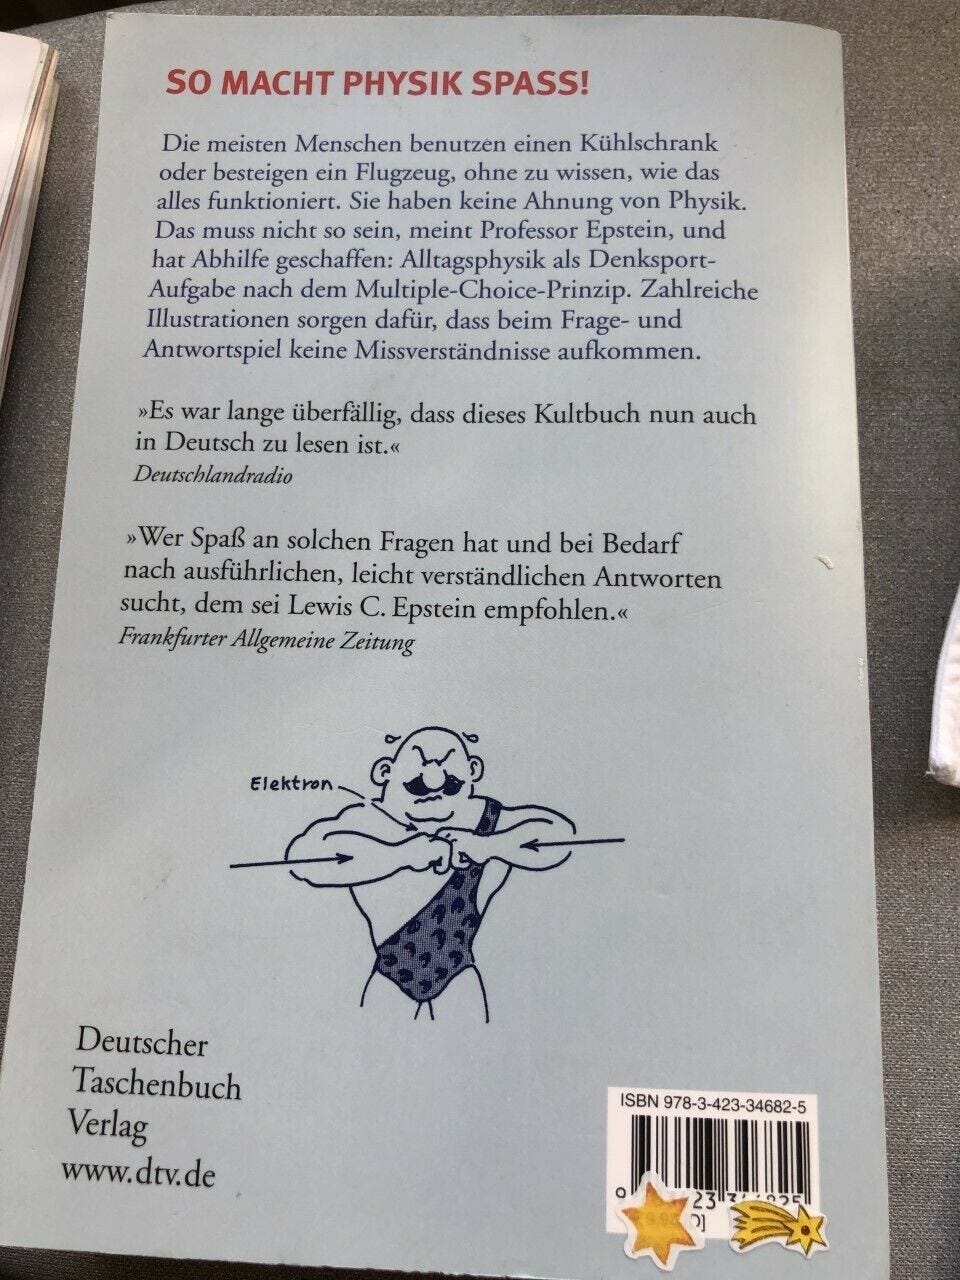 SO MACHT PHYSIK SPASS!
Die meisten Menschen benutzen einen Kühlschrank
oder besteigen ein Flugzeug, ohne zu wissen, wie das
alles funktioniert. Sie haben keine Ahnung von Physik.
Das muss nicht so sein, meint Professor Epstein, und
hat Abhilfe geschaffen: Alltagsphysik als Denksport-
Aufgabe nach dem Multiple-Choice-Prinzip. Zahlreiche
Illustrationen sorgen dafür, dass beim Frage- und
Antwortspiel keine Missverständnisse aufkommen.
»Es war lange überfällig, dass dieses Kultbuch nun auch
in Deutsch zu lesen ist.«
Deutschlandradio
»Wer Spaß an solchen Fragen hat und bei Bedarf
nach ausführlichen, leicht verständlichen Antworten
sucht, dem sei Lewis C. Epstein empfohlen.«
Frankfurter Allgemeine Zeitung
Elektron
Deutscher
Taschenbuch
Verlag
www.dtv.de
ISBN 978-3-423-34682-5